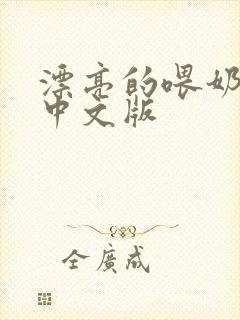 漂亮的喂奶
中文版
仝廣成